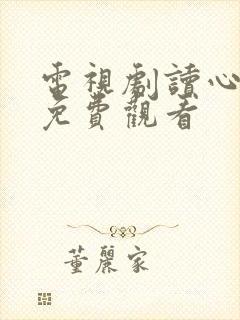 電視劇讀心
免費觀看
董麗家